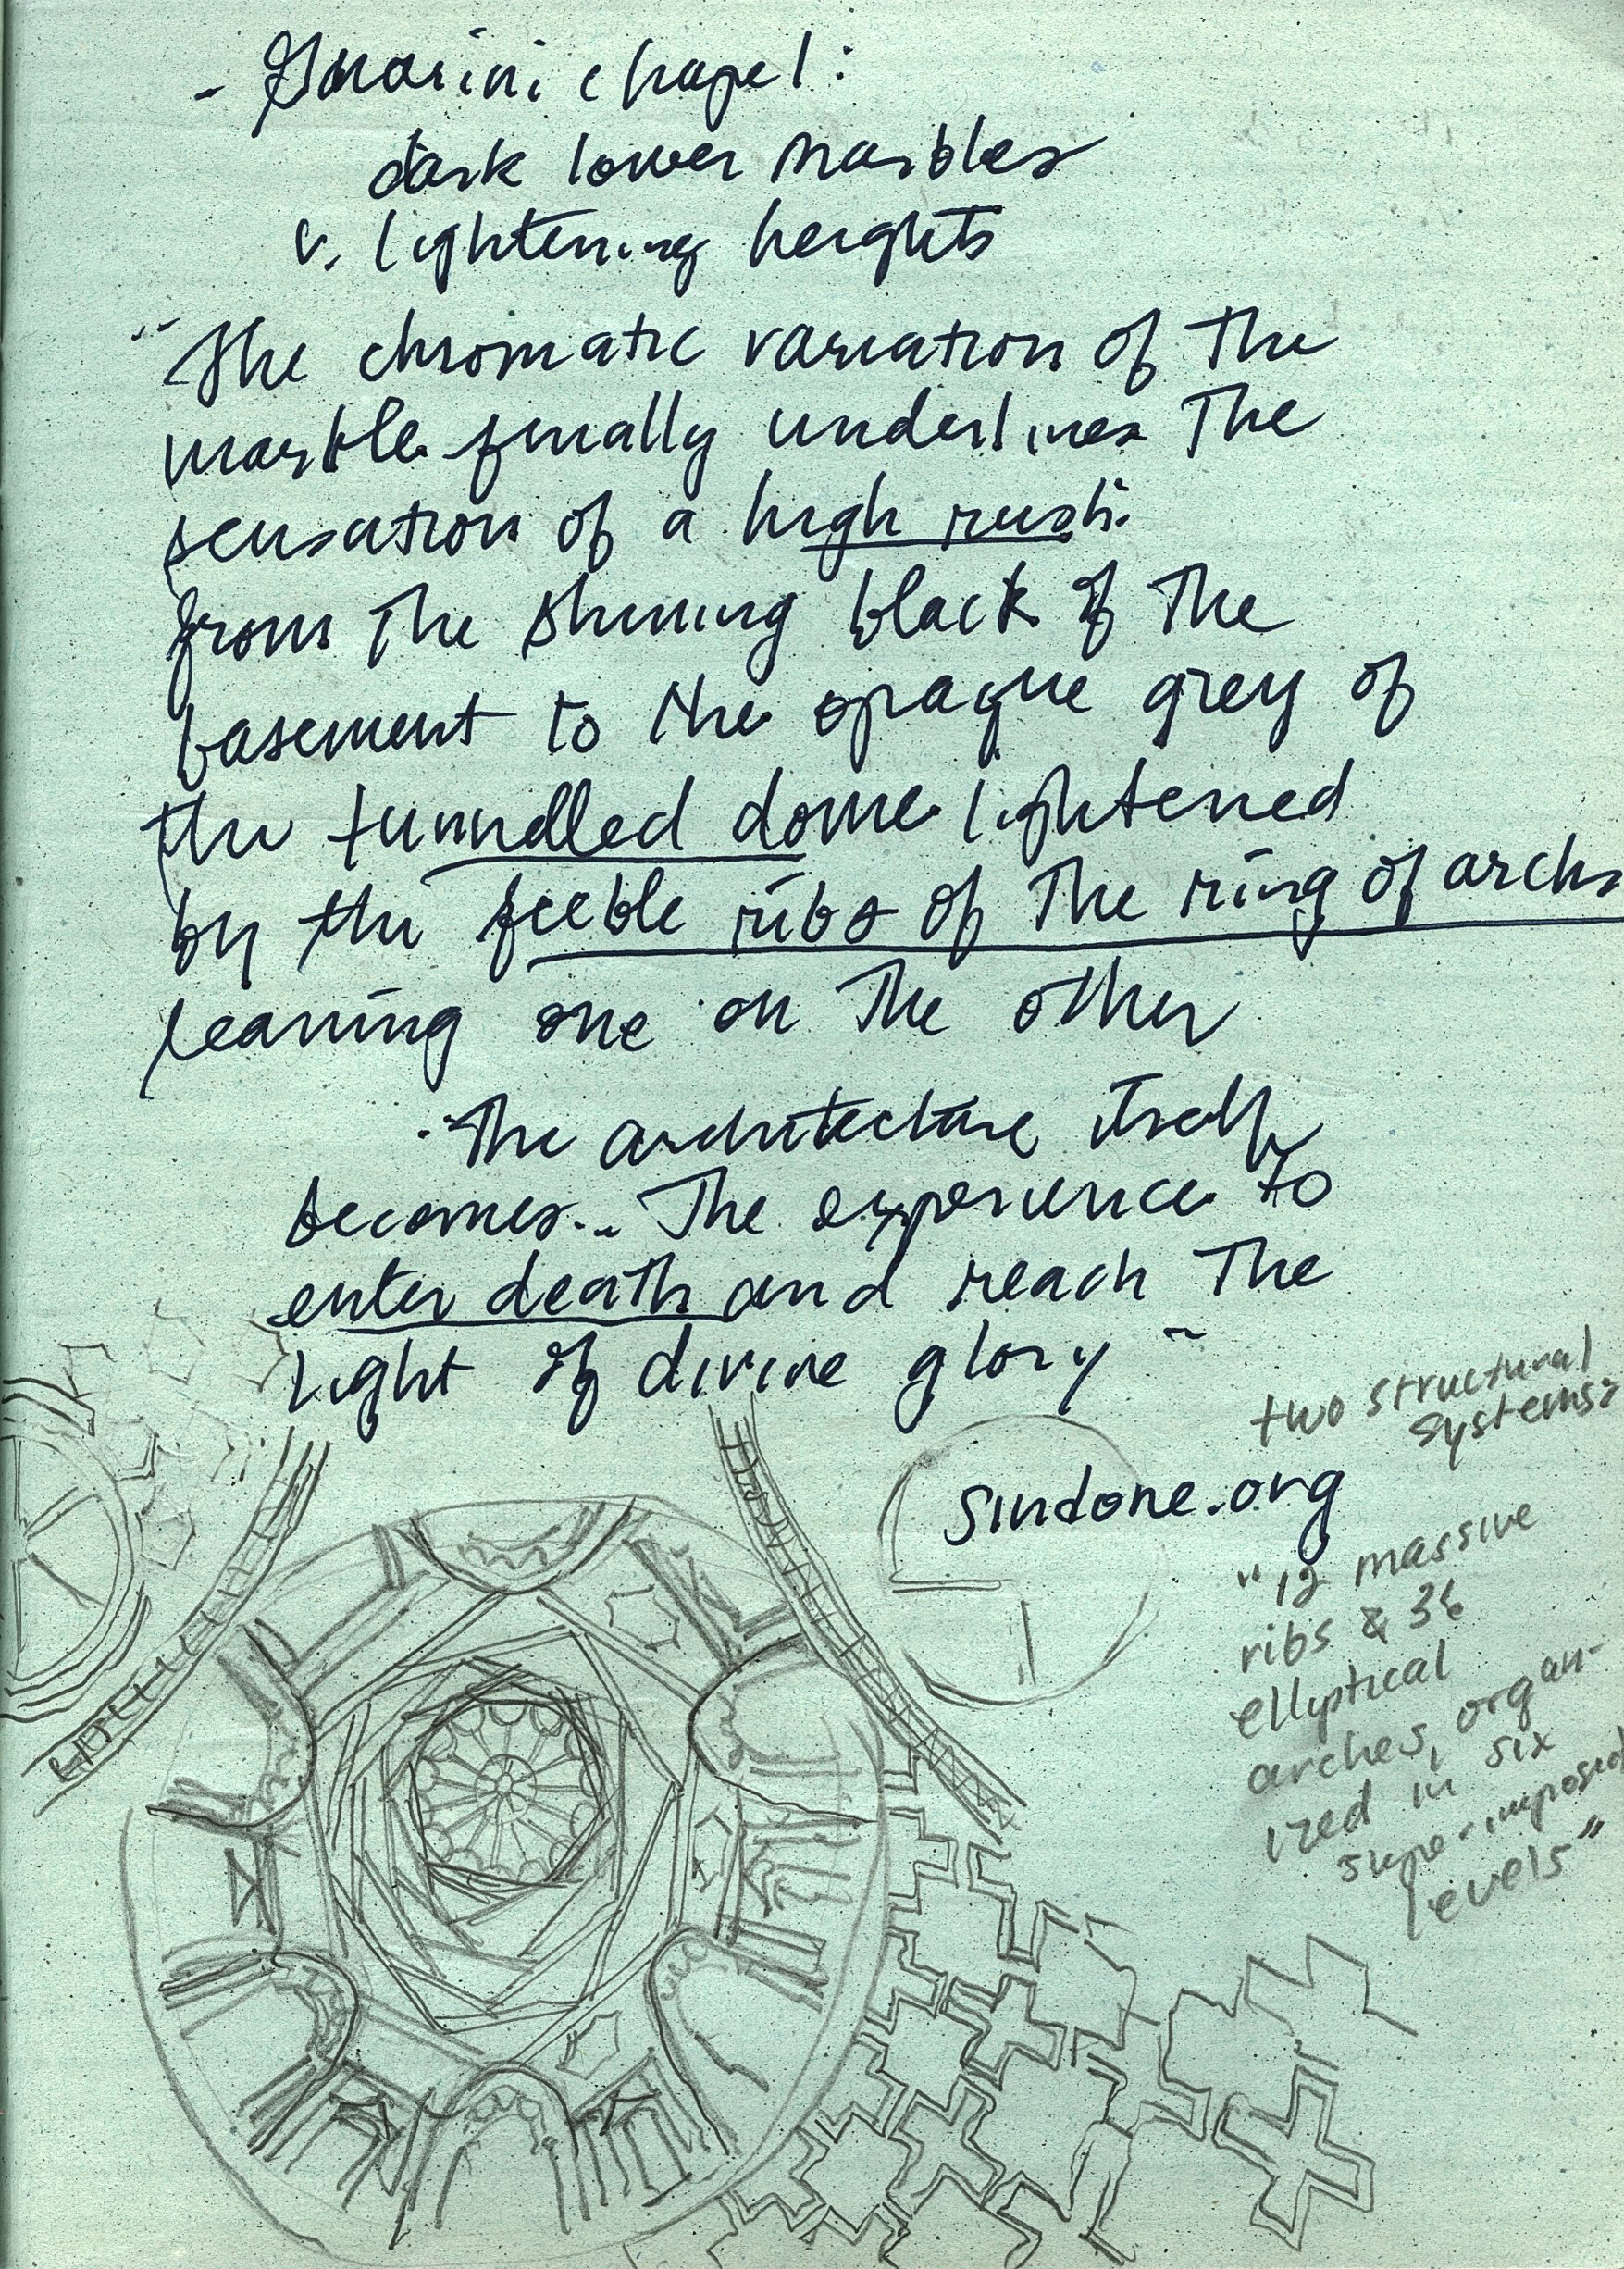 - Guarini chapel:
dark lower marbles
v. lightening heights
"The chromatic variation of the
marble finally underlines the
sensation of a high rush:
from the shining black of the
basement to the opaque grey of
the tunnelled dome lightened
by the feeble ribs of the ring of archs
leaning one on the other
. The architecture itself
becomes... The experience to
enter death and reach the
light of divine glory"
two structural
systems:
sindone.org
"12 massive
ribs & 36
elliptical
arches, organ-
ized in six
superimposed
levels"